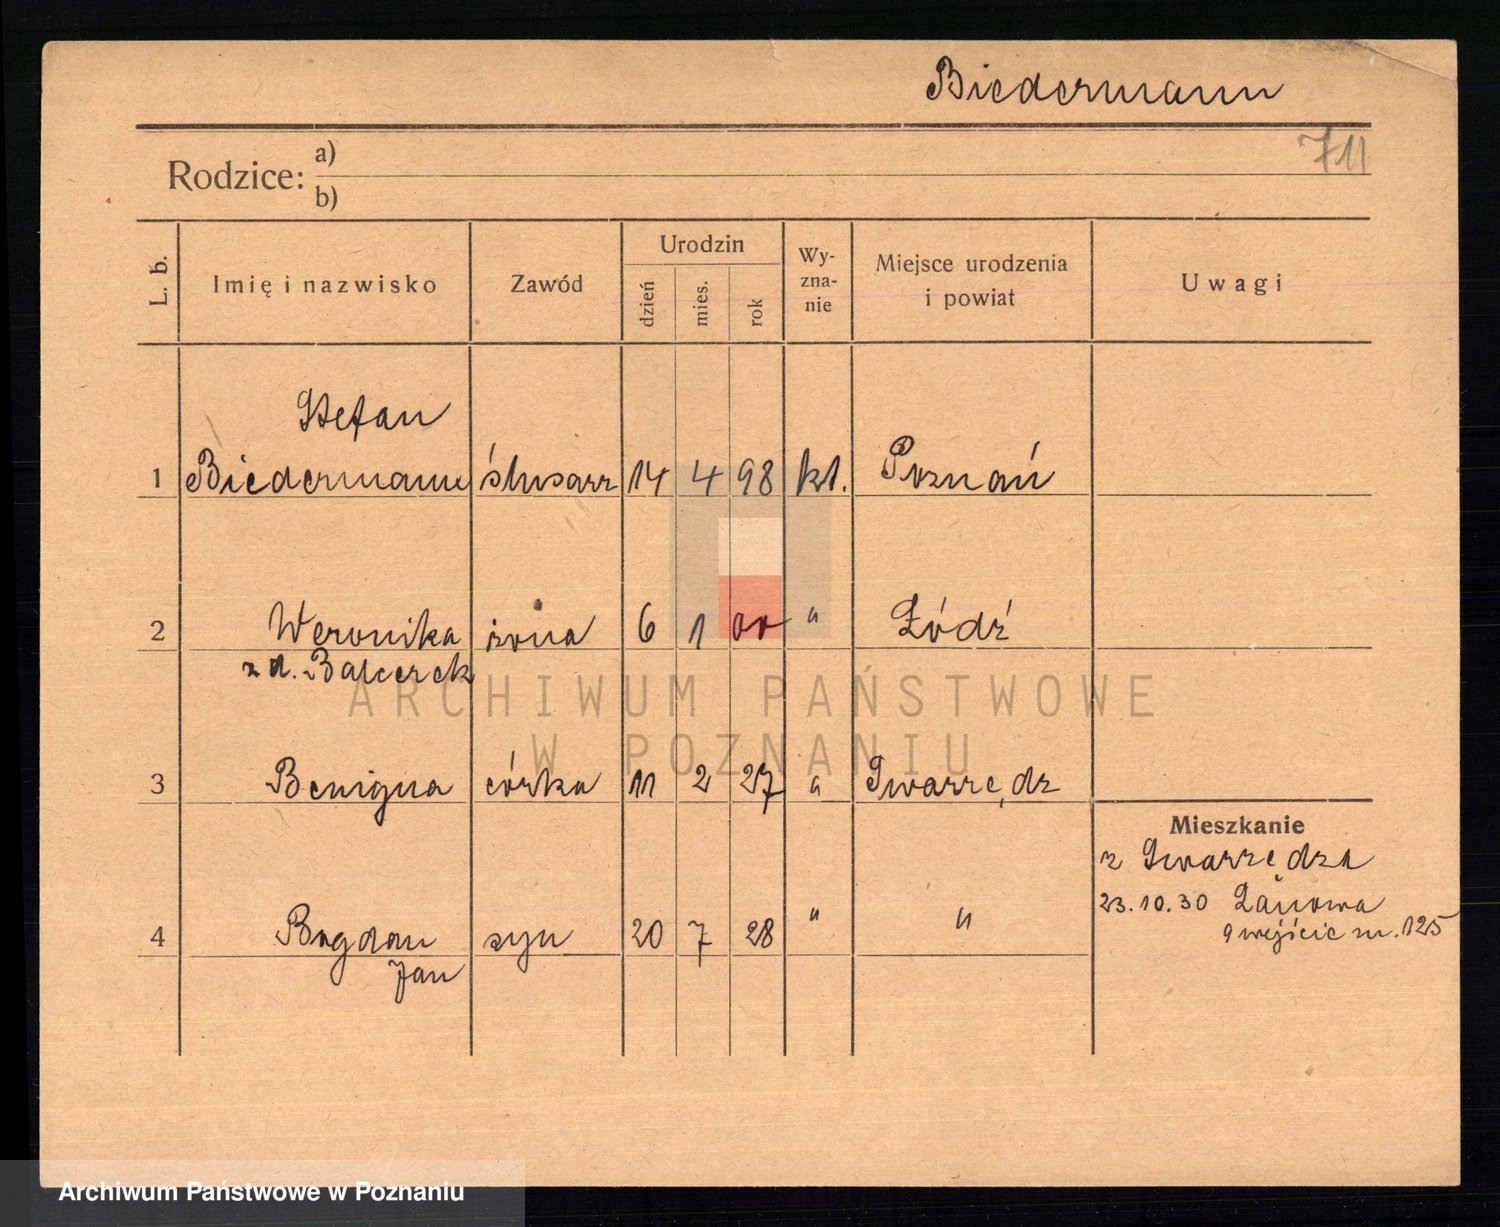 Biedermann
711
Rodzice: a)
b)
L. b.
Imię i nazwisko
Zawód
Urodzin
dzień
mies.
rok
Wy-
zna-
nie
Miejsce urodzenia
i powiat
Uwagi
Stefan
1 Biedermann ślusarz 14 4 98 kt. Poznań
2 Weronika żona 6 1 00 " Łódź
z d. Balcerek
ARCHIWUM PAŃSTWOWE
W POZNANIU
3 Benigna córka 11 2 27 " Swarzędz
Mieszkanie
z Swarzędza
23.10.30 Łanowa
4 Bogdan syn 20 7 28 " "
9 wejście m. 125
Jan
Archiwum Państwowe w Poznaniu